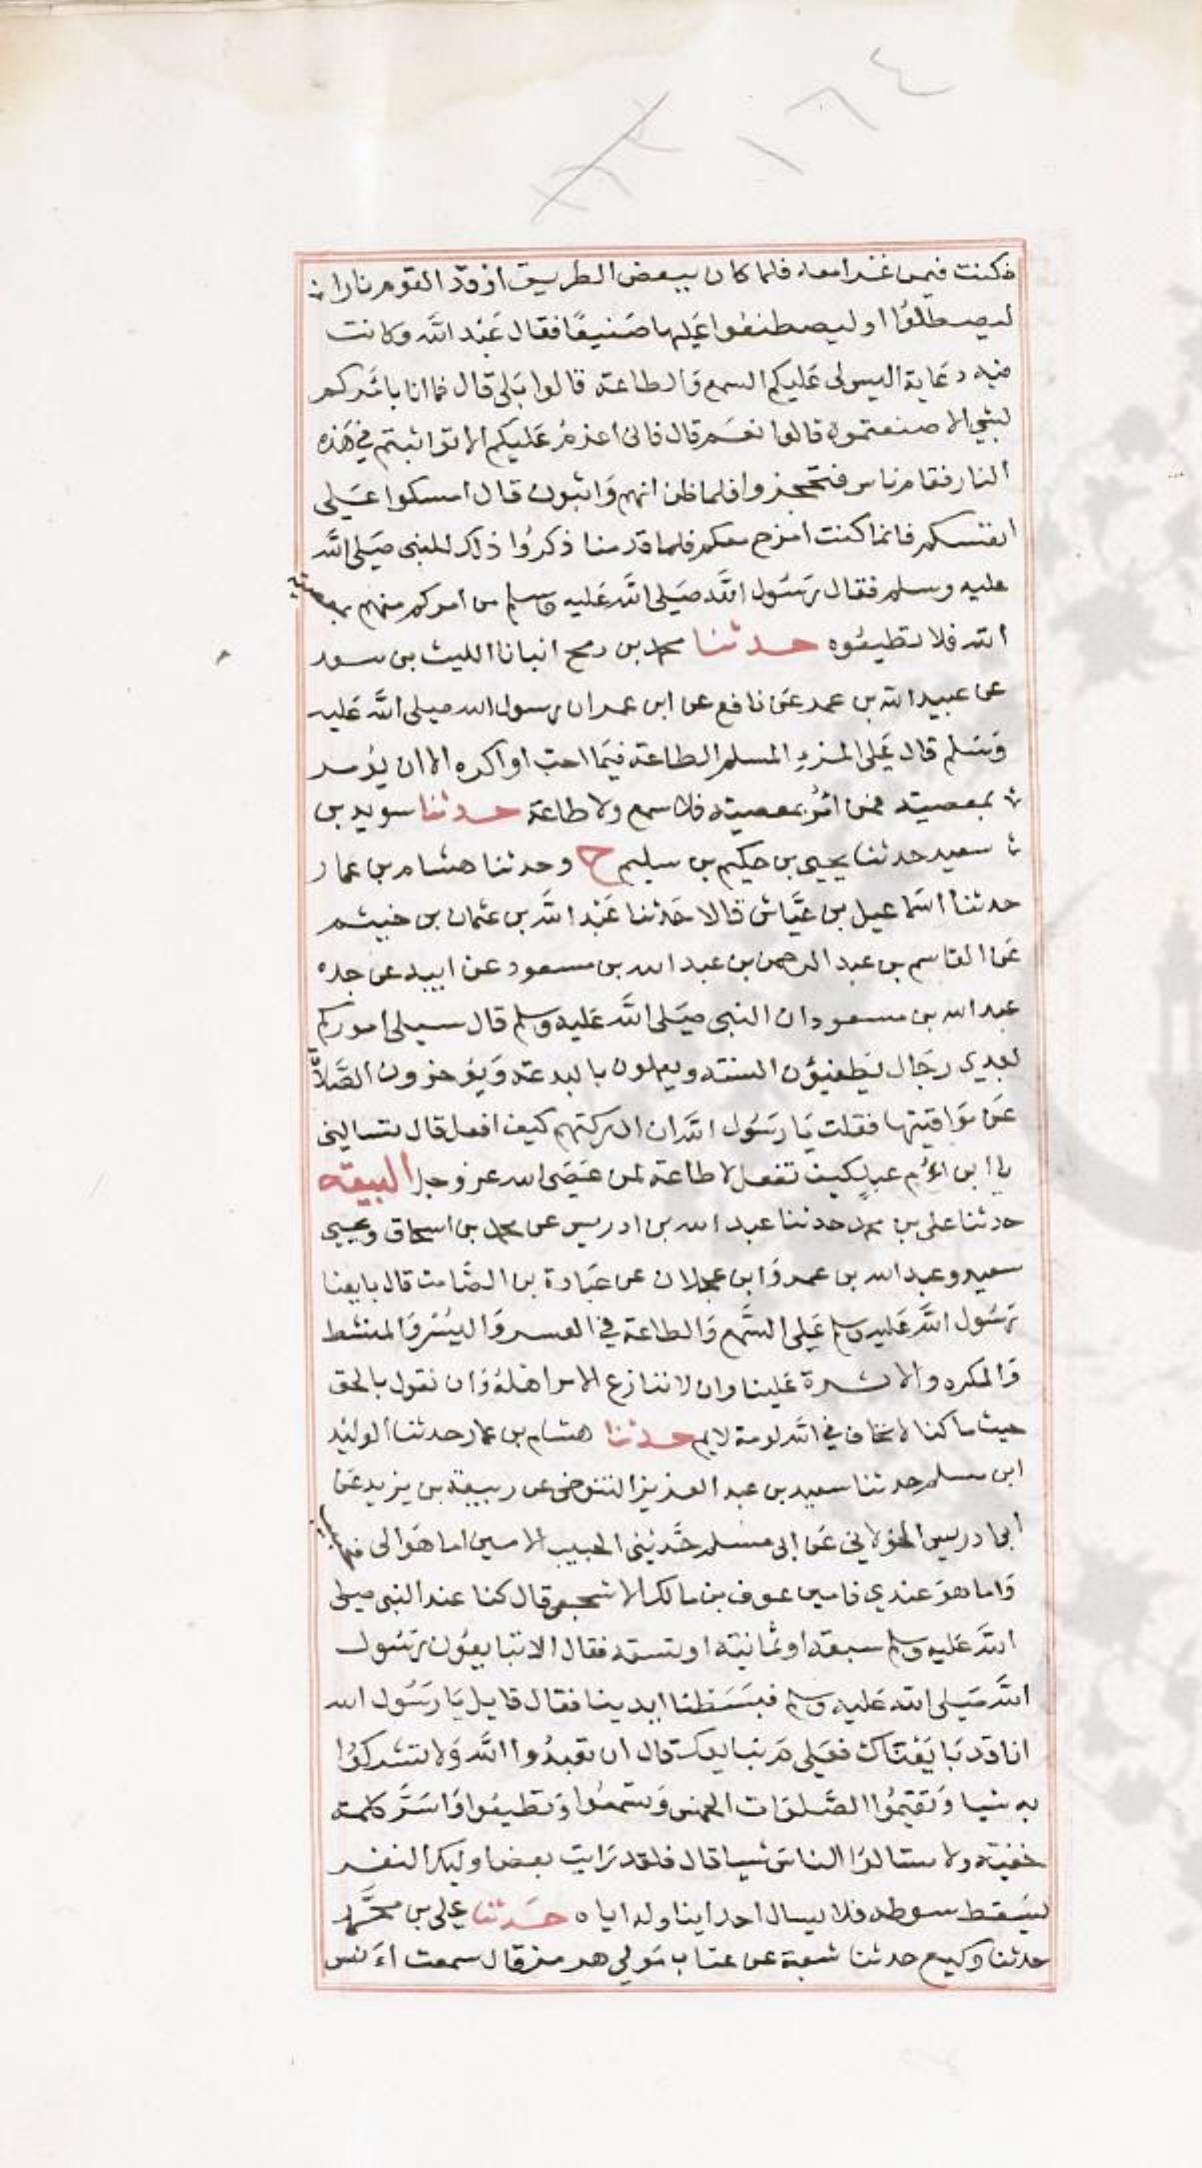 ١٦٤
فكنت فيمن غزا معه فلما كان ببعض الطريق اوقد القوم نارا
ليصطلوا او ليصطنعوا عليها صنيعا فقال عبد الله وكانت
فيه دعابة اليس لى عليكم السمع والطاعة قالوا بلى قال فما انا بامركم
لبشي الا صنعتموه قالوا نعم قال فانى اعزم عليكم الا تواثبتم في هذه
النار فقام ناس فتحجزوا فلما ظن انهم واثبون قال امسكوا على
انفسكم فانما كنت امزح معكم فلما قدمنا ذكروا ذلك للنبى صلى الله
عليه وسلم فقال رسول الله صلى الله عليه وسلم من امركم منهم بمعصية
الله فلا تطيعوه حدثنا محمد بن رمح انبانا الليث بن سعد
عن عبيد الله بن عمر عن نافع عن ابن عمر ان رسول الله صلى الله عليه
وسلم قال على المرء المسلم الطاعة فيما احب او اكره الا ان يؤمر
بمعصية فمن امر بمعصية فلا سمع ولا طاعة حدثنا سويد بن
سعيد حدثنا يحيى بن حكيم بن سليم ح وحدثنا هشام بن عمار
حدثنا اسماعيل بن عياش قالا حدثنا عبد الله بن عثمان بن خيثم
عن القاسم بن عبد الرحمن بن عبد الله بن مسعود عن ابيه عن جده
عبد الله بن مسعود ان النبى صلى الله عليه وسلم قال سيلى اموركم
بعدي رجال يطفيؤن السنة ويعملون بالبدعة ويؤخرون الصلاة
عن مواقيتها فقلت يا رسول الله ان ادركتهم كيف افعل قال تسالينى
يا ابن اءم عبد كيف تفعل لا طاعة لمن عصى الله عز وجل البيعة
حدثنا على بن محمد حدثنا عبد الله بن ادريس عن محمد بن اسحاق ويحيى
سعيد وعبد الله بن عمر وابن عجلان عن عبادة بن الصامت قال بايعنا
رسول الله عليه وسلم على السمع والطاعة في العسر واليسر والمنشط
والمكره والاثرة علينا وان لا ننازع الامر اهله وان نقول بالحق
حيث ما كنا لا نخاف في الله لومة لايم حدثنا هشام بن عمار حدثنا الوليد
ابن مسلم حدثنا سعيد بن عبد العزيز التنوخى عن ربيعة بن يزيد عن
ابى ادريس الخولاني عن ابى مسلم حدثنى الحبيب الامين اما هو الى فحبيب
واما هو عندي فامين عوف بن مالك الاشجعى قال كنا عند النبى صلى
الله عليه وسلم سبعة او ثمانية او تسعة فقال الا تبايعون رسول
الله صلى الله عليه وسلم فبسطنا ايدينا فقال قايل يا رسول الله
انا قد بايعناك فعلى م نبايعك قال ان تعبدوا الله ولا تشركوا
به شيا وتقيموا الصلوات الخمس وتسمعوا وتطيعوا واسر كلمة
خفية ولا تسالوا الناس شيا قال فلقد رايت بعض اوليك النفر
يسقط سوطه فلا يسال احدا يناوله اياه حدثنا على بن محمد
حدثنا وكيع حدثنا شعبة عن عتاب مولي هرمز قال سمعت اءنس